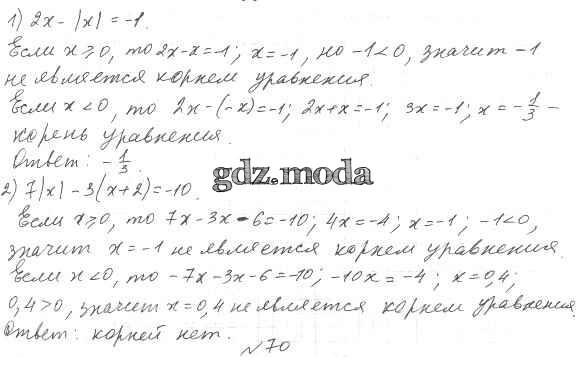 1) 2x - |x| = -1.
Если x ⩾ 0, то 2x - x = -1; x = -1, но -1 < 0, значит -1
не является корнем уравнения.
Если x < 0, то 2x - (-x) = -1; 2x + x = -1; 3x = -1; x = -1/3 -
корень уравнения.
Ответ: -1/3.
gdz.moda
2) 7|x| - 3(x+2) = -10.
Если x ⩾ 0, то 7x - 3x - 6 = -10; 4x = -4; x = -1; -1 < 0,
значит x = -1 не является корнем уравнения.
Если x < 0, то -7x - 3x - 6 = -10; -10x = -4; x = 0,4;
0,4 > 0, значит x = 0,4 не является корнем уравнения.
Ответ: корней нет.
№70